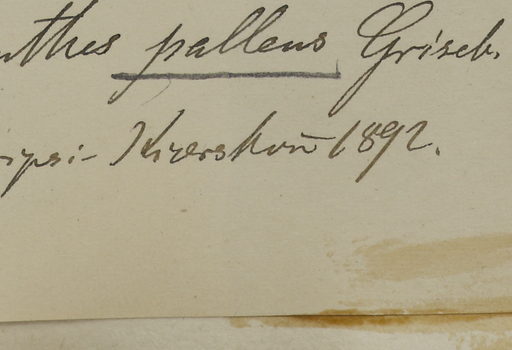 nthes pallens Griseb.
ripsi- Kiærskou 1892.